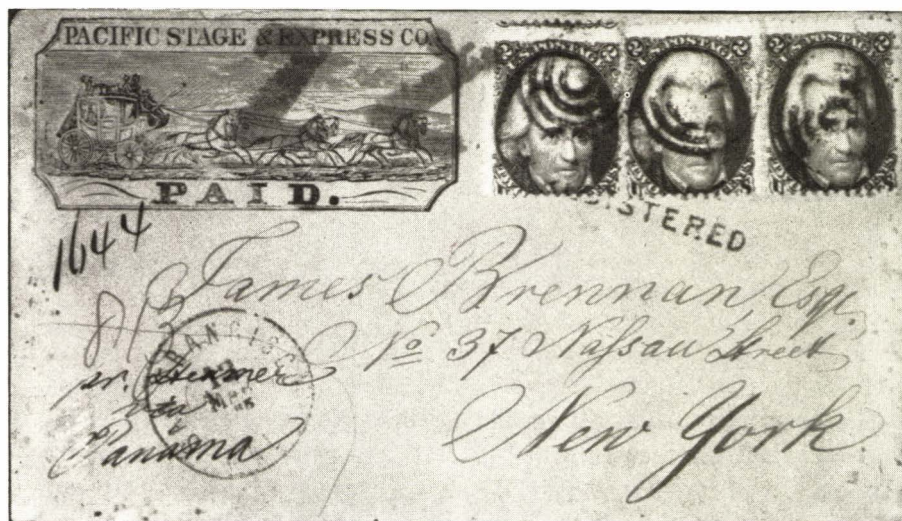 PACIFIC STAGE & EXPRESS CO.
PAID.
ISTERED
1644
James Brennan, Esqr.
No 37 Nassau Street
New York
RANCISC
pr. Steamer
via
Panama